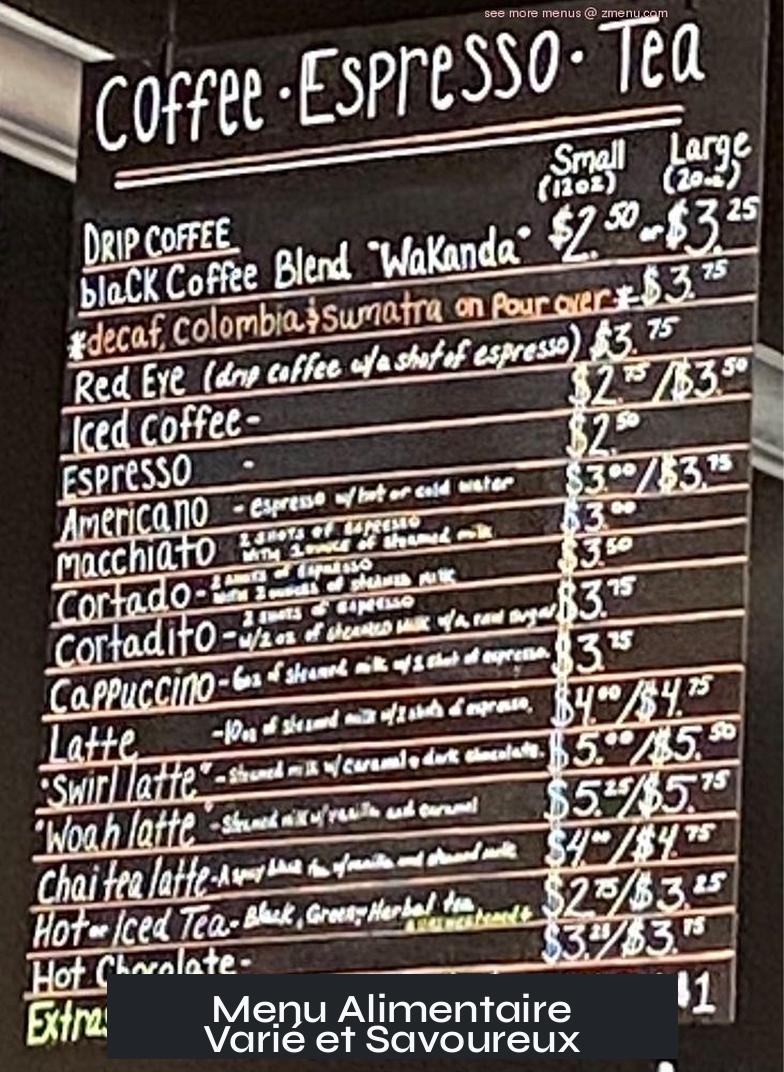 see more menus @ zmenu.com
Coffee · Espresso · Tea
Small Large
(12oz) (20oz)
DRIP COFFEE
blaCK Coffee Blend "WaKanda" $2.50 or $3.25
*decaf, Colombia & Sumatra on Pour over* $3.75
Red Eye (drip coffee w/a shot of espresso) $3.75
Iced Coffee - $2.75/$3.50
Espresso - $2.50
Americano - espresso w/hot or cold water $3.00/$3.75
Macchiato 2 shots of espresso with 1 ounce of steamed milk $3.00
Cortado - 2 shots of espresso with 2 ounces of steamed milk $3.50
Cortadito - 2 shots of espresso w/2 oz of steamed milk w/a raw sugar $3.75
Cappuccino - 6oz of steamed milk w/2 shot of espresso. $3.75
Latte - 10oz of steamed milk w/2 shots of espresso. $4.00/$4.75
"Swirl latte" - Steamed milk w/caramel & dark chocolate. $5.00/$5.50
"Woah latte" - Steamed milk w/vanilla and caramel $5.25/$5.75
Chai tea latte - A spicy black tea w/vanilla and steamed milk $4.00/$4.75
Hot or Iced Tea - Black, Green, Herbal tea $2.75/$3.25
*unsweetened*
Hot Chocolate - $3.25/$3.75
Extras
Menu Alimentaire
Varié et Savoureux